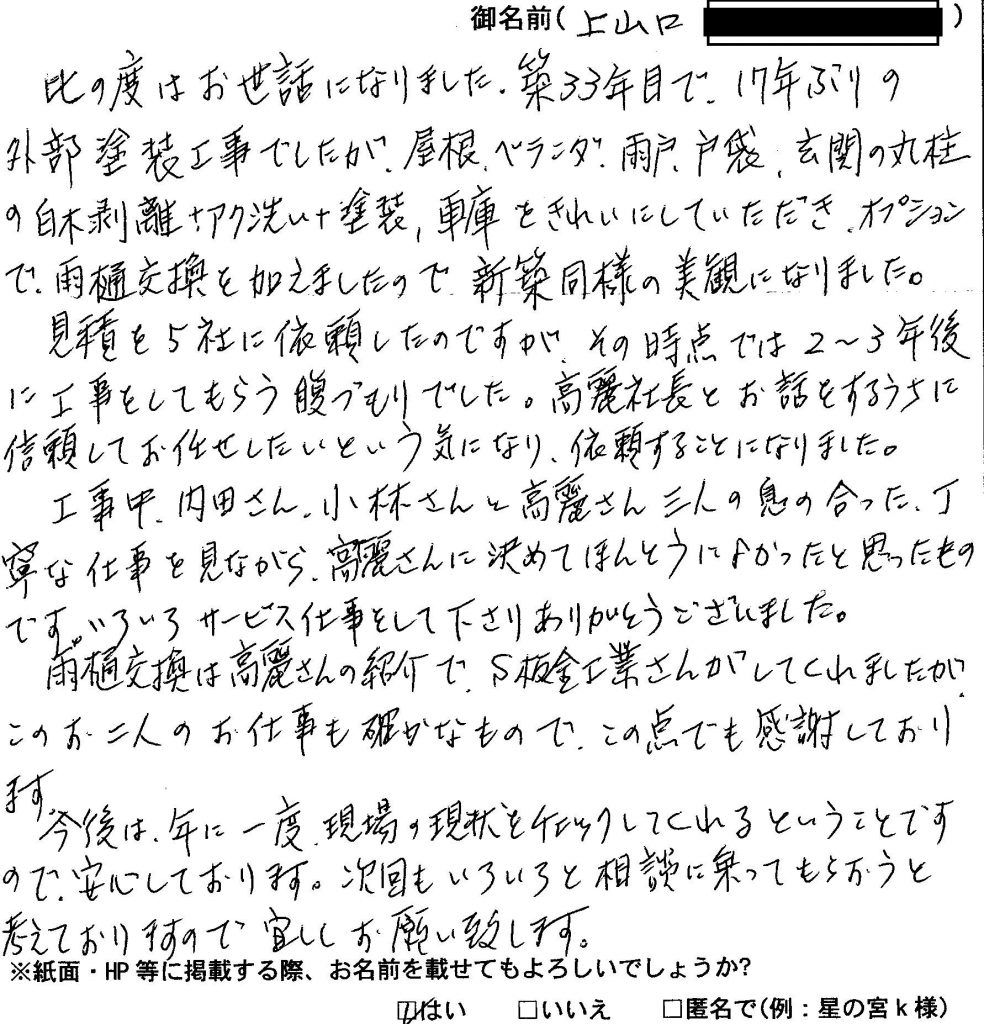 御名前( 上山口 )
此の度はお世話になりました。築33年目で、17年ぶりの
外部塗装工事でしたが、屋根、ベランダ、雨戸、戸袋、玄関の丸柱
の白木剥離+アク洗い+塗装、車庫をきれいにしていただき、オプション
で、雨樋交換を加えましたので、新築同様の美観になりました。
見積を5社に依頼したのですが、その時点では2~3年後
に工事をしてもらう腹づもりでした。高麗社長とお話をするうちに
信頼してお任せしたいという気になり、依頼することになりました。
工事中、内田さん、小林さんと高麗さん三人の息の合った、丁
寧な仕事を見ながら、高麗さんに決めてほんとうによかったと思ったもの
です。いろいろサービス仕事をして下さりありがとうございました。
雨樋交換は高麗さんの紹介で、S板金工業さんがしてくれましたが、
このお二人のお仕事も確かなもので、この点でも感謝しており
ます。
今後は、年に一度、現場の現状をチェックしてくれるということです
ので、安心しております。次回もいろいろと相談に乗ってもらおうと
考えておりますので宜しくお願い致します。
※紙面・HP等に掲載する際、お名前を載せてもよろしいでしょうか?
☑はい □いいえ □匿名で(例:星の宮k様)